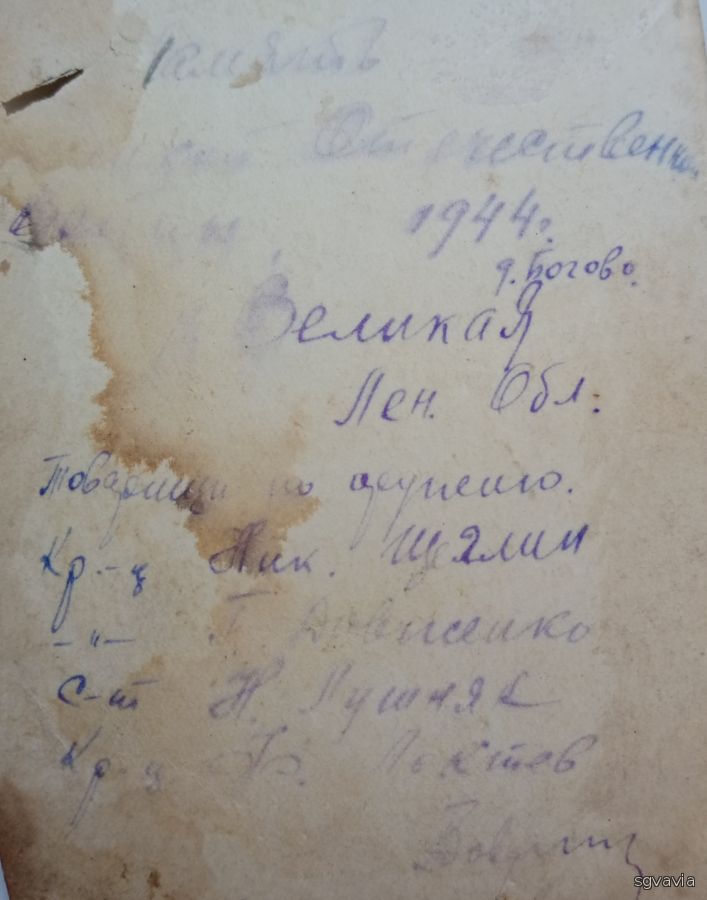 Память
Отечественной
войны, 1944г.
д. Богово.
Великая
Лен. Обл.
Товарищи по оружию.
Кр.-ц Ник. Щялин
-"- Г. Довженко
С-т Н. Пушняк
Кр-ц Локтев
sgvavia